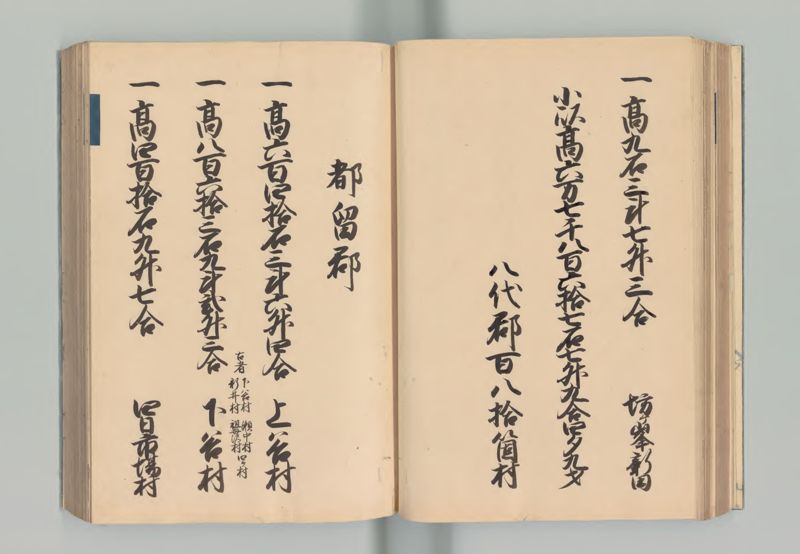 一高九石三斗七升三合 坊ケ峯新田
小以高六万七千八百六拾七石七升九合四夕九才
八代郡百八拾箇村
都留郡
一高六百四拾石三斗六升四合 上谷村
一高八百六拾二石九斗弐升二合 下谷村
古者 下谷村 瀬中村 四ケ村
新井村
一高四百拾石九升七合 四日市場村